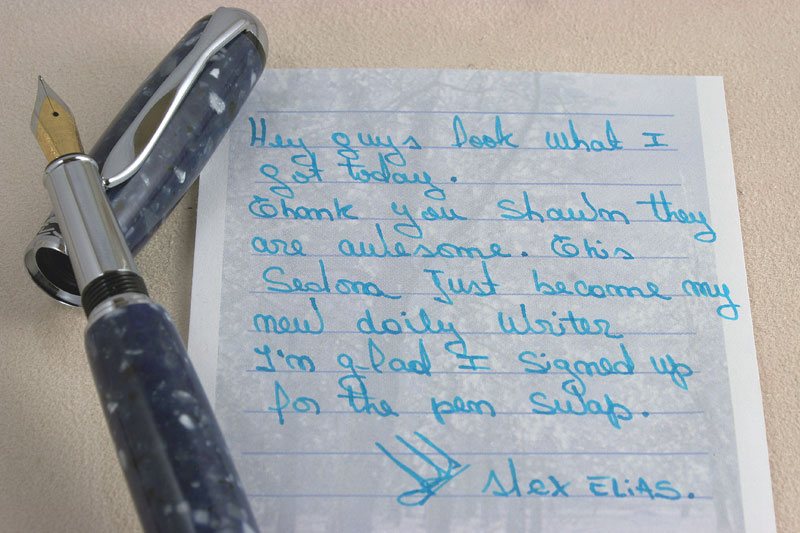 Hey guys look what I
got today.
Thank you Shawn they
are awesome. This
Sedona Just become my
new daily writer
I'm glad I signed up
for the pen swap.
Alex ELiAS.